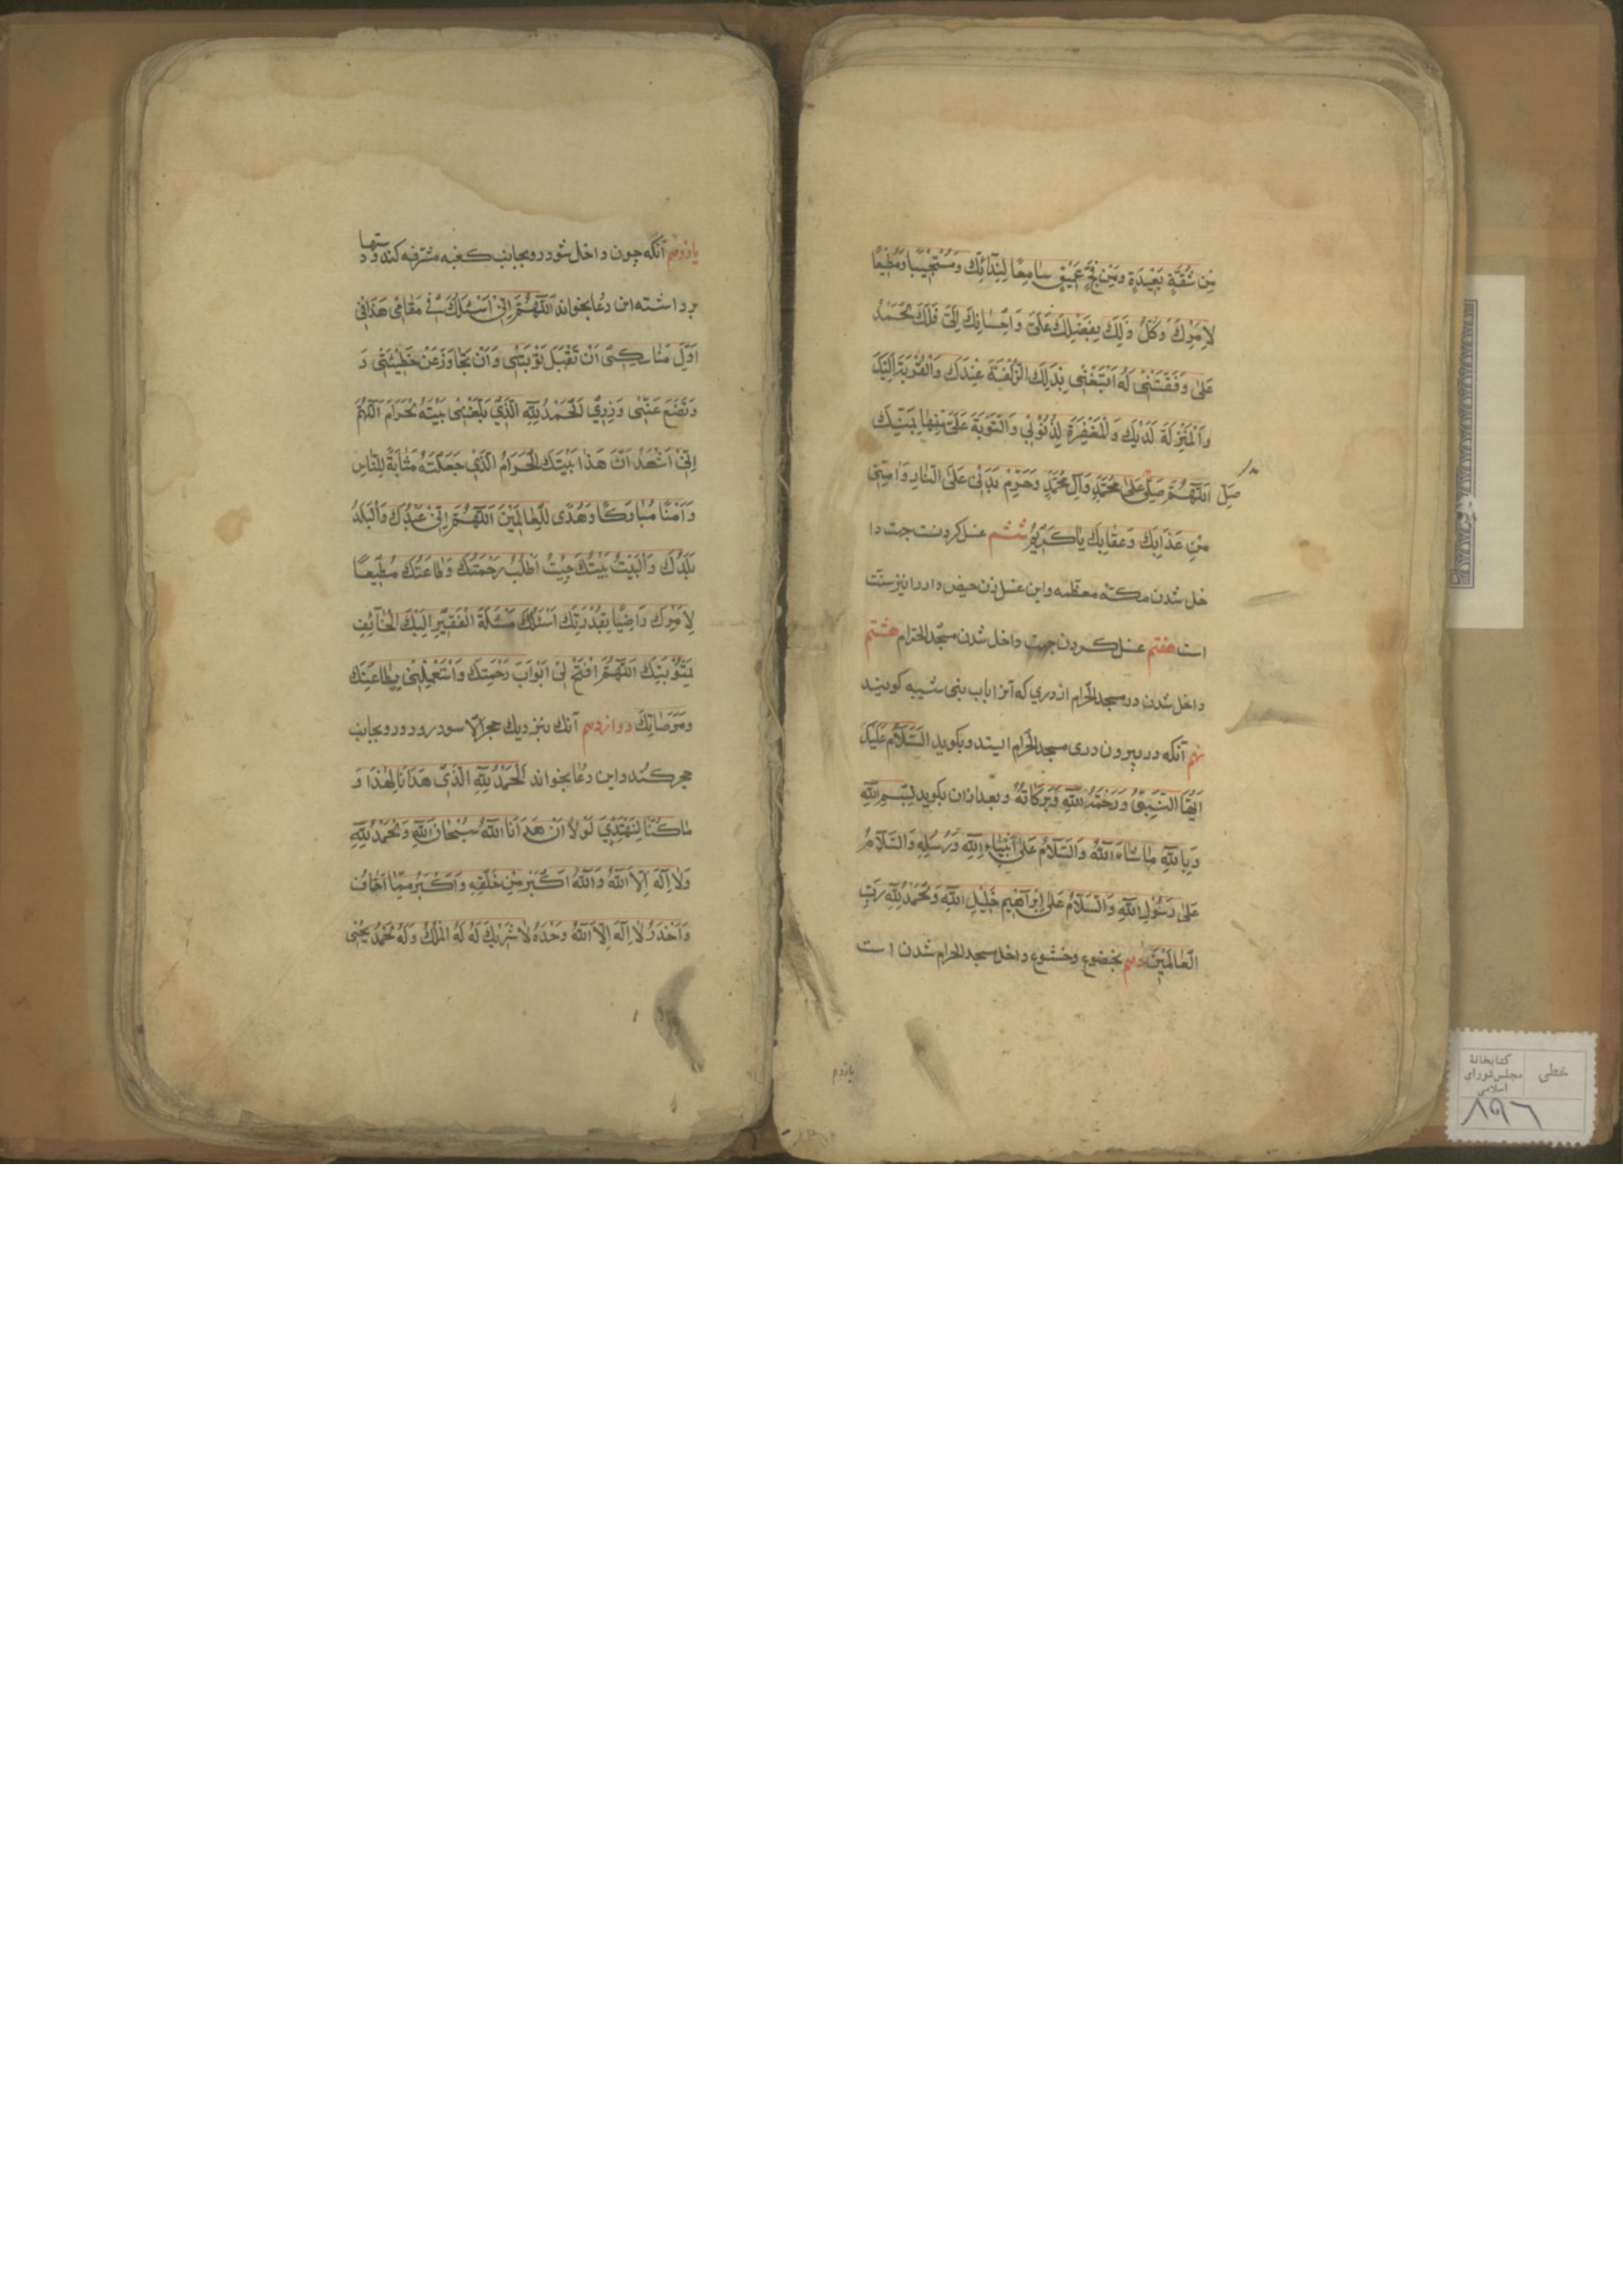 مِن شُقَّةٍ بَعِيدَةٍ وَمِن فَجٍّ عَمِيقٍ سَامِعًا لِنِدَائِكَ وَمُسْتَجِيبًا وَمُطِيعًا
لِاَمْرِكَ وَكُلُّ ذَلِكَ بِفَضْلِكَ عَلَىَّ وَاِحْسَانِكَ اِلَىَّ فَلَكَ الْحَمْدُ
عَلٰى وَفَّقْتَنِى لَهُ اَبْتَغِى بِذَلِكَ الزُّلْفَةَ عِنْدَكَ وَالْقُرْبَةَ اِلَيْكَ
وَالْمَنْزِلَةَ لَدَيْكَ وَالْمَغْفِرَةَ لِذُنُوبِي وَالتَّوْبَةَ عَلَىَّ مِنْهَا بِمَنِّكَ
صل اَللّٰهُمَّ صَلِّ عَلٰى مُحَمَّدٍ وَآلِ مُحَمَّدٍ وَحَرِّمْ بَدَنِى عَلَى النَّارِ وَآمِنِّى
مِنْ عَذَابِكَ وَعِقَابِكَ يَا كَرِيمُ ششم غسل كردنست جهت دا
خل شدن مكّه معظمه و اين غسل زن حيض دار را نيز سنّت
است هفتم غسل كردن جهت داخل شدن مسجد الحرام هشتم
داخل شدن در مسجد الحرام از دري كه آنرا باب بنى شيبه كويند
نهم آنكه در بيرون درى مسجد الحرام ايستد و بكويد السَّلَامُ عَلَيْكَ
اَيُّهَا النَّبِيُّ وَرَحْمَةُ اللّٰهِ وَبَرَكَاتُهُ و بعد ازان بكويد بِسْمِ اللّٰهِ
وَبِاللّٰهِ مَا شَاءَ اللّٰهُ وَالسَّلَامُ عَلٰى اَنْبِيَاءِ اللّٰهِ وَرُسُلِهِ وَالسَّلَامُ
عَلٰى رَسُولِ اللّٰهِ وَالسَّلَامُ عَلٰى اِبْرَاهِيمَ خَلِيلِ اللّٰهِ وَالْحَمْدُ لِلّٰهِ رَبِّ
الْعَالَمِينَ دهم بخضوع و خشوع داخل مسجد الحرام شدن است
يازدهم
يازدهم آنكه چون داخل شود رو بجانب كعبه مشرفه كند و دستها
برداشته اين دعا بخواند اَللّٰهُمَّ اِنِّى اَسْئَلُكَ فِى مَقَامِى هَذَا فِى
اَوَّلِ مَنَاسِكِى اَنْ تَقْبَلَ تَوْبَتِى وَاَنْ تَجَاوَزَ عَنْ خَطِيئَتِى وَ
وَتَضَعَ عَنِّى وِزْرِي الْحَمْدُ لِلّٰهِ الَّذِي بَلَّغَنِى بَيْتَهُ الْحَرَامَ اَللّٰهُمَّ
اِنِّى اَشْهَدُ اَنَّ هَذَا بَيْتُكَ الْحَرَامُ الَّذِي جَعَلْتَهُ مَثَابَةً لِلنَّاسِ
وَاَمْنًا مُبَارَكًا وَهُدًى لِلْعَالَمِينَ اَللّٰهُمَّ اِنِّى عَبْدُكَ وَالْبَلَدُ
بَلَدُكَ وَالْبَيْتُ بَيْتُكَ جِئْتُ اَطْلُبُ رَحْمَتَكَ وَطَاعَتَكَ مُطِيعًا
لِاَمْرِكَ رَاضِيًا بِقُدْرَتِكَ اَسْئَلُكَ مَسْئَلَةَ الْفَقِيرِ اِلَيْكَ الْخَائِفِ
بِعُقُوبَتِكَ اَللّٰهُمَّ افْتَحْ لِى اَبْوَابَ رَحْمَتِكَ وَاسْتَعْمِلْنِى بِطَاعَتِكَ
وَمَرْضَاتِكَ دوازدهم آنك بنزديك حجر الاسود رود و رو بجانب
حجر كند و اين دعا بخواند الْحَمْدُ لِلّٰهِ الَّذِى هَدَانَا لِهَذَا وَ
مَا كُنَّا لِنَهْتَدِيَ لَوْلَا اَنْ هَدَانَا اللّٰهُ سُبْحَانَ اللّٰهِ وَالْحَمْدُ لِلّٰهِ
وَلَا اِلَهَ اِلَّا اللّٰهُ وَاللّٰهُ اَكْبَرُ مِنْ خَلْقِهِ وَاَكْبَرُ مِمَّا اَخَافُ
وَاَحْذَرُ لَا اِلَهَ اِلَّا اللّٰهُ وَحْدَهُ لَا شَرِيكَ لَهُ لَهُ الْمُلْكُ وَلَهُ الْحَمْدُ يُحْيِى
خطى
كتابخانهٔ
مجلس شوراى
اسلامى
۸۹۶